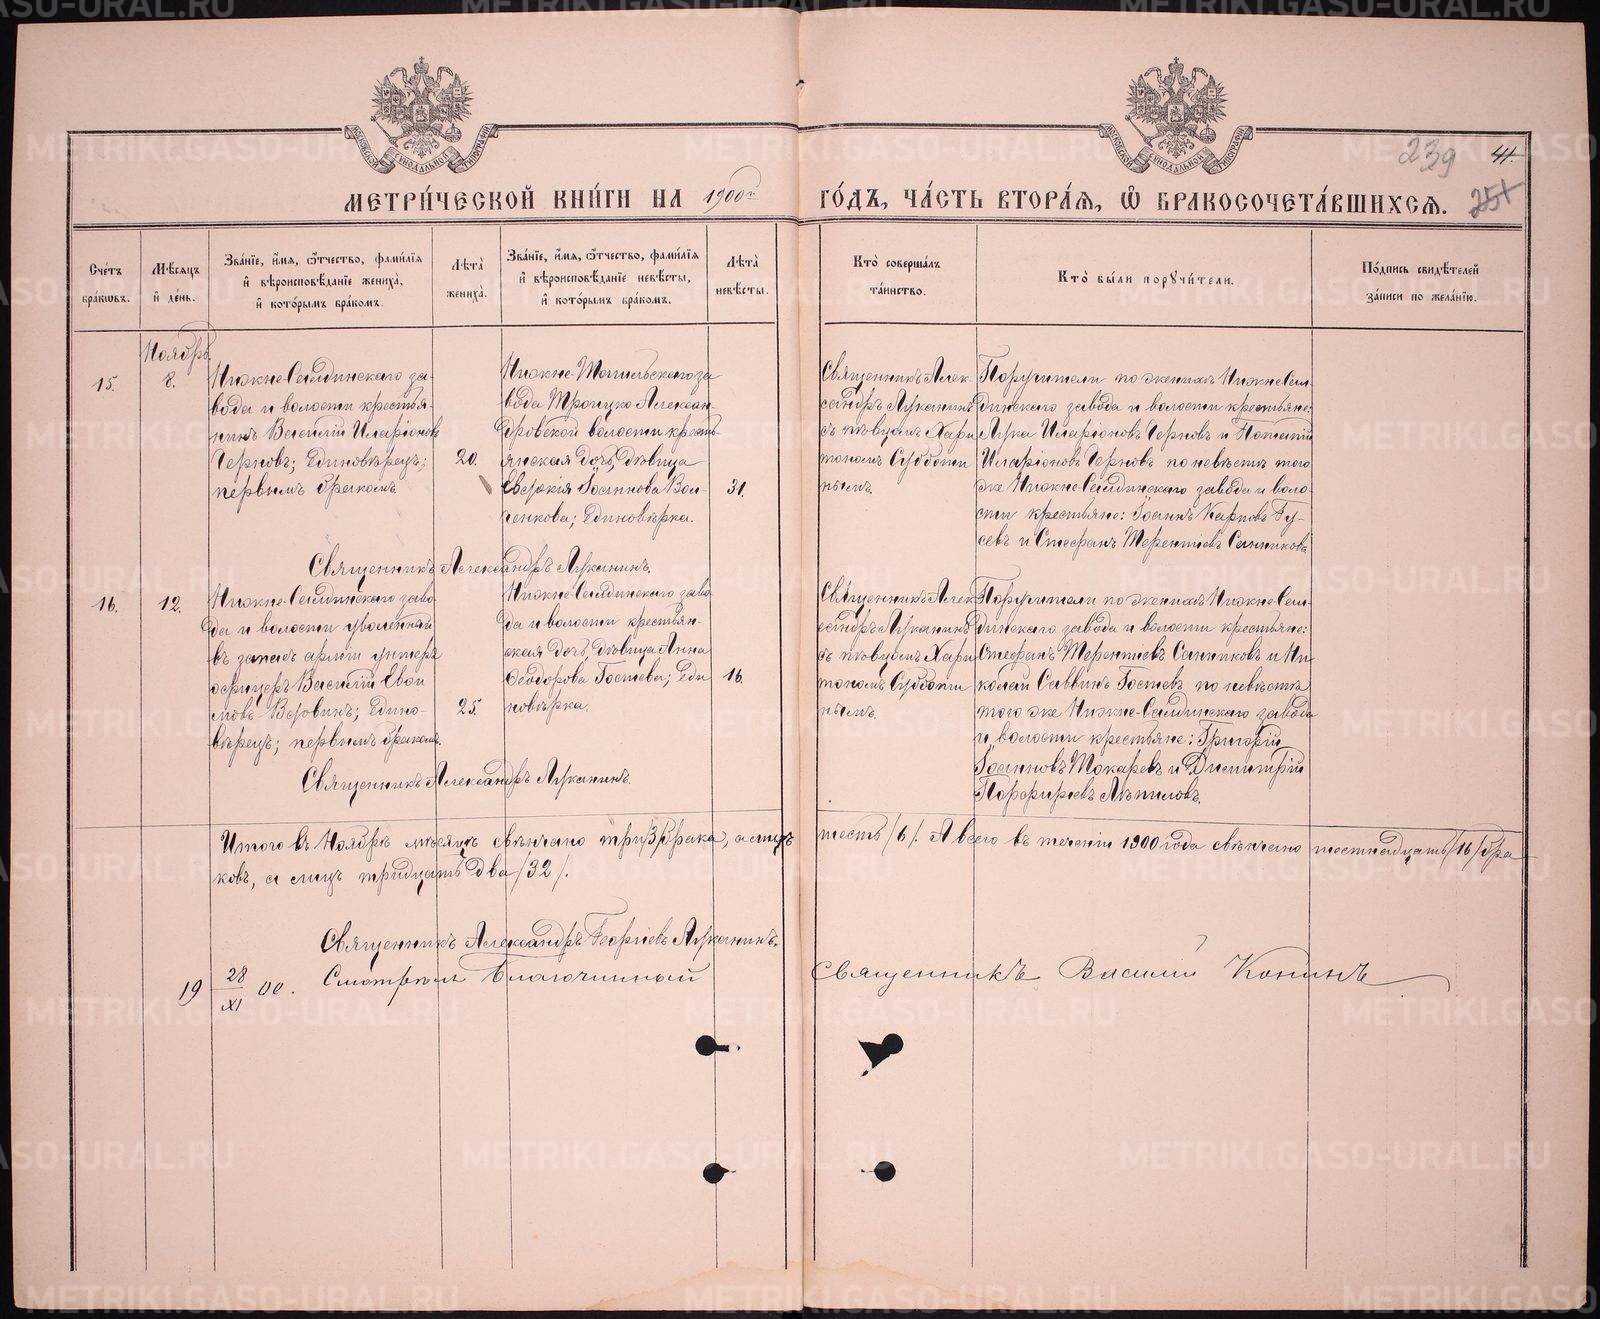 МЕТРИ́ЧЕСКОЙ КНИ́ГИ НА 1900й ГО́ДЪ, ЧА́СТЬ ВТОРА́Я, Ѿ БРАКОСОЧЕТА́ВШИХСЯ.
239
41.
МОСКОВСКОЙ СѴНОДАЛЬНОЙ ТИПОГРАФІИ
МОСКОВСКОЙ СѴНОДАЛЬНОЙ ТИПОГРАФІИ
Сче́тъ бра́ковъ.
Мѣ́сяцъ и҆ де́нь.
Зва́нїе, и҆́мя, ѻ҆́тчество, фами́лїя
и҆ вѣроисповѣ́данїе жениха̀,
и҆ кото́рымъ бра́комъ.
Лѣ́та жениха̀.
Зва́нїе, и҆́мя, ѻ҆́тчество, фами́лїя
и҆ вѣроисповѣ́данїе невѣ́сты,
и҆ кото́рымъ бра́комъ.
Лѣ́та невѣ́сты.
Кто̀ соверша́лъ та́инство.
Кто̀ бы́ли порꙋчи́тели.
По́дпись свидѣ́телей за́писи по жела́нїю.
15.
Ноябрь
8.
Нижне-Салдинскаго за-
вода и волости крестья-
нинъ Василій Иларіоновъ
Черновъ; Единовѣрецъ;
первымъ бракомъ.
20.
Нижне-Тагильскаго за
вода Троицко-Алексан-
дровской волости кресть-
янская дочь, дѣвица
Іоаннова Вол-
ченкова; Единовѣрка.
31.
Священникъ Алек
сандръ Луканинъ
съ пѣвцомъ Хари
тономъ Субботи
нымъ.
Поручители по женихѣ Нижне-Сал-
динскаго завода и волости крестьяне:
Лука Иларіоновъ Черновъ и Потапій
Иларіоновъ Черновъ по невѣстѣ того
же Нижне-Салдинскаго завода и воло-
сти крестьяне: Іоаннъ Карповъ Гу-
севъ и Стефанъ Терентіевъ Санниковъ
Священникъ Александръ Луканинъ.
16.
12.
Нижне-Салдинскаго заво-
да и волости уволенный
въ запасъ арміи унтеръ
офицеръ Василій
Веровинъ; Едино-
вѣрецъ; первымъ бракомъ.
25.
Нижне-Салдинскаго заво
да и волости крестьян-
ская дочь, дѣвица Анна
Ѳеодорова Гостева; Еди
новѣрка.
16.
Священникъ Алек
сандръ Луканинъ
съ пѣвцомъ Хари
тономъ Субботи
нымъ.
Поручители по женихѣ Нижне-Сал-
динскаго завода и волости крестьяне:
Стефанъ Терентіевъ Санниковъ и Ни-
колай Саввинъ Гостевъ по невѣстѣ
того же Нижне-Салдинскаго завода
и волости крестьяне: Григорій
Іоанновъ Токаревъ и Димитрій
Порфиріевъ Лѣпиловъ.
Священникъ Александръ Луканинъ.
Итого въ Ноябрѣ мѣсяцѣ свѣнчано три /3/ брака, а лицъ шесть /6/. А всего въ теченіи 1900 года свѣнчано шестнадцать /16/ бра
ковъ, а лицъ тридцать два /32/.
Священникъ Александръ Георгіевъ Луканинъ.
19 28/XI 00. Смотрѣлъ Благочинный Священникъ Василій Конинъ
METRIKI.GASO-URAL.RU